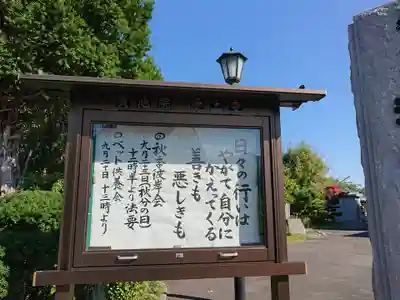 日々の行いは
やがて自分に
かえってくる
善きも
悪しきも
◎秋季彼岸会
九月二三日(秋分の日)
十三時半より法要
◎ペット供養会
九月二十日 十三時より